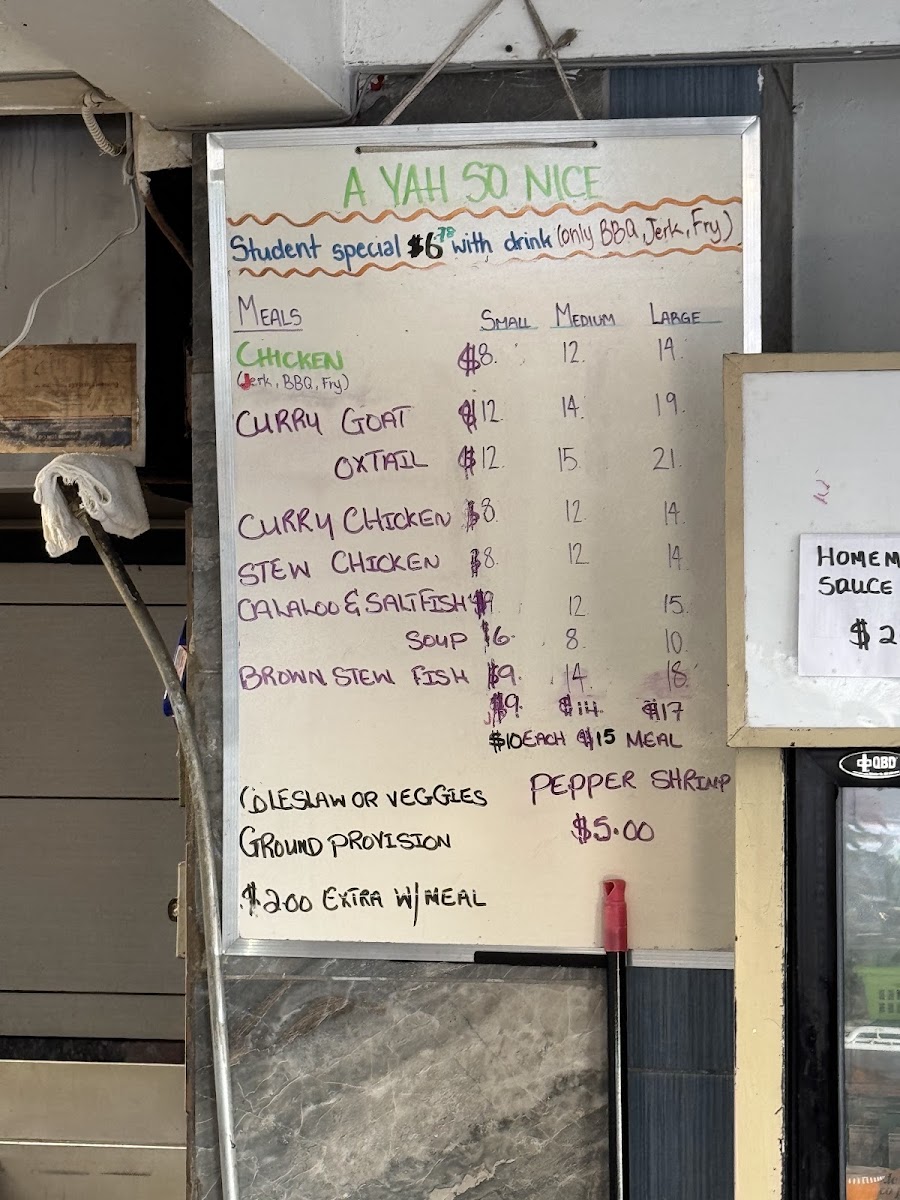 A YAH SO NICE
Student special $6.78 with drink (only BBQ, Jerk, Fry)
MEALS SMALL MEDIUM LARGE
CHICKEN $8. 12. 14.
(Jerk, BBQ, Fry)
CURRY GOAT $12. 14. 19.
OXTAIL $12. 15. 21.
CURRY CHICKEN $8. 12. 14.
STEW CHICKEN $8. 12 14
CALALOO & SALTFISH $9. 12. 15.
SOUP $6. 8. 10.
BROWN STEW FISH $9. 14. 18.
$9. $14. $17
$10 EACH $15 MEAL
COLESLAW OR VEGGIES PEPPER SHRIMP
GROUND PROVISION $5.00
$2.00 EXTRA W/MEAL
HOMEM
SAUCE
$2
QBD